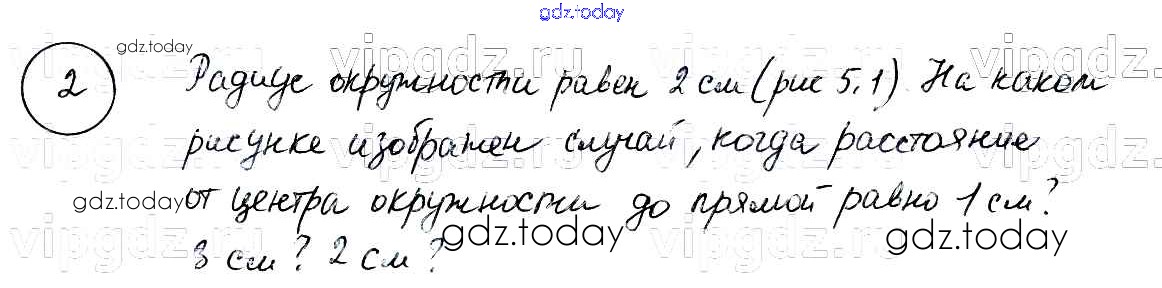 gdz.today
gdz.today
vipgdz.ru vipgdz.ru vipgdz.ru
2 Радиус окружности равен 2 см (рис 5.1) На каком
рисунке изображен случай, когда расстояние
gdz.today от центра окружности до прямой равно 1 см?
gdz.today gdz.today
3 см? 2 см?